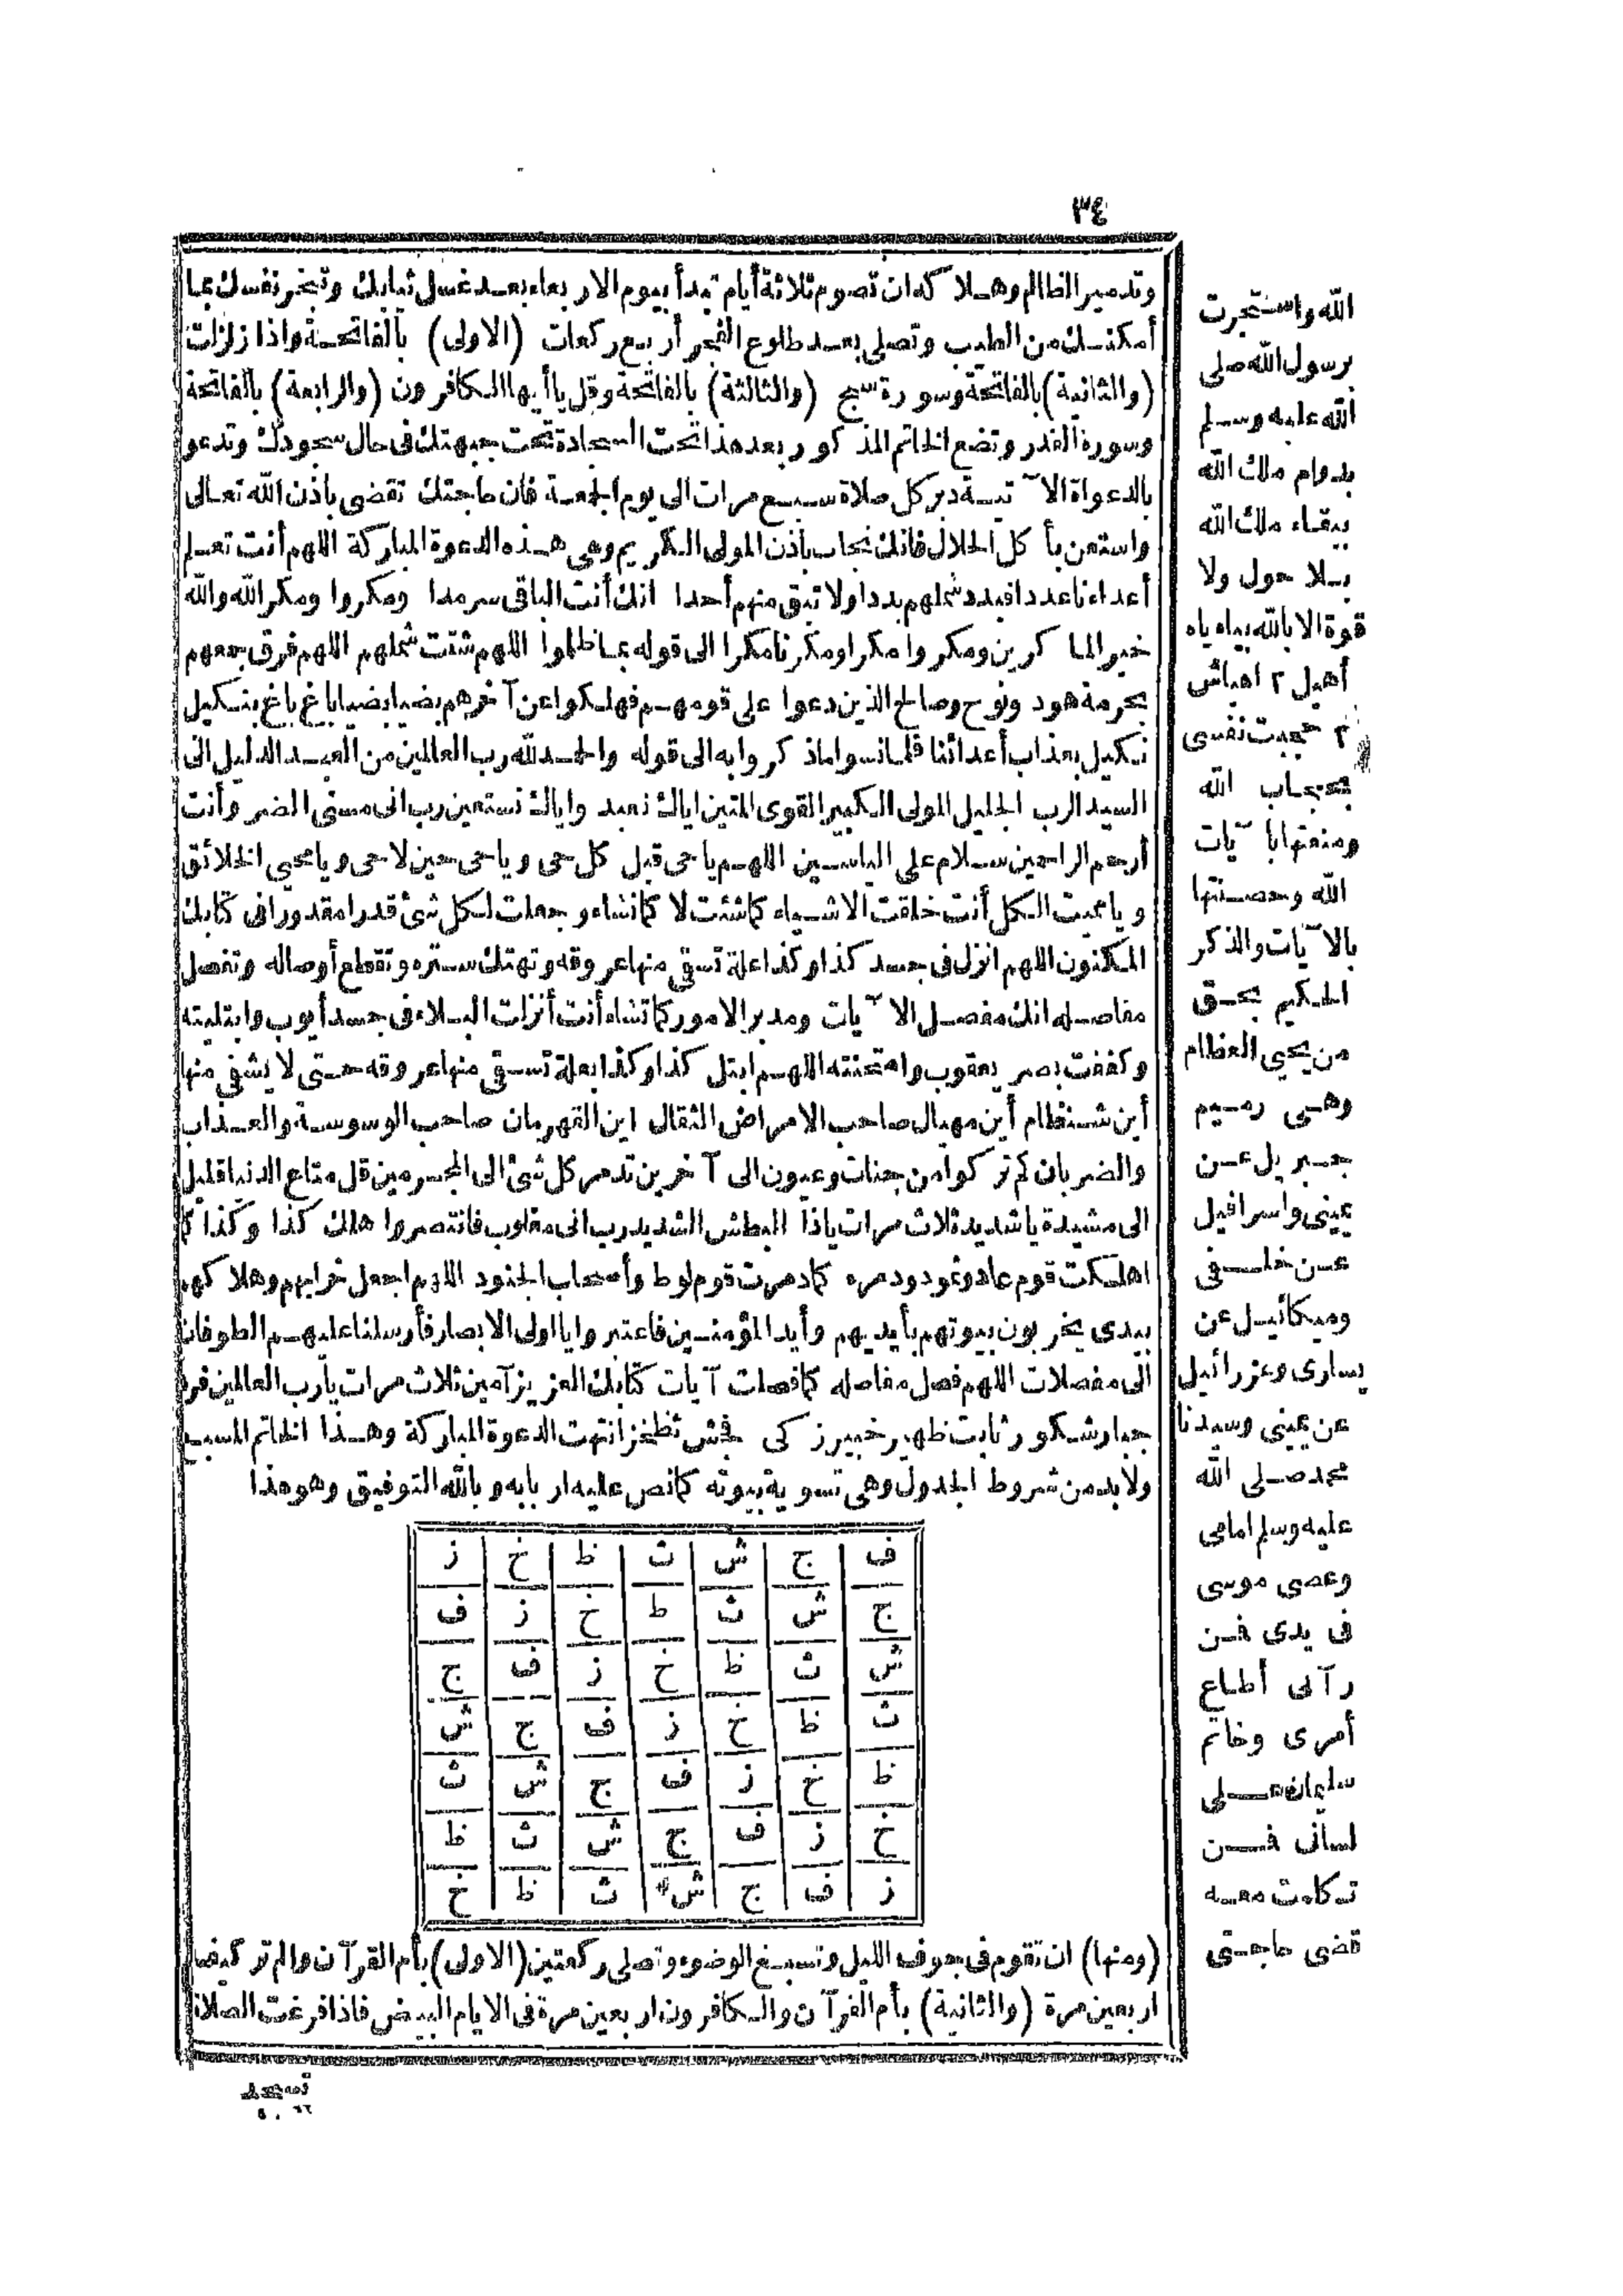 ٣٤
وتدمير الظالم وهلاكه ان تصوم ثلاثة أيام تبدأ بيوم الاربعاء بعد غسل ثيابك وتبخر نفسك بما
أمكنك من الطيب وتصلى بعد طلوع الفجر أربع ركعات (الاولى) بالفاتحة واذا زلزلت
(والثانية) بالفاتحة وسورة سبح (والثالثة) بالفاتحة وقل ياأيها الكافرون (والرابعة) بالفاتحة
وسورة القدر وتضع الخاتم المذكور بعد هذا تحت السجادة تحت جبهتك فى حال سجودك وتدعو
بالدعواة الآتية دبر كل صلاة سبع مرات الى يوم الجمعة فان حاجتك تقضى باذن الله تعالى
واستعن بأكل الحلال فانك تجاب باذن المولى الكريم وهى هذه الدعوة المباركة اللهم أنت تعلم
أعداءنا عددا فبدد شملهم بددا ولا تبق منهم أحدا انك أنت الباقى سرمدا ومكروا ومكر الله والله
خير الماكرين ومكروا مكرا ومكرنا مكرا الى قوله بما ظلموا اللهم شتت شملهم اللهم فرق جمعهم
بحرمة هود ونوح وصالح الذين دعوا على قومهم فهلكوا عن آخرهم بضيا بضيا باغ باغ بنكيل
نكيل بعذاب أعدائنا فلما نسوا ماذكروا به الى قوله والحمد لله رب العالمين من العبد الذليل الى
السيد الرب الجليل المولى الكبير القوى المتين اياك نعبد واياك نستعين رب انى مسنى الضر وأنت
أرحم الراحمين سلام على الياسين اللهم ياحى قبل كل حى وياحى حين لاحى ويامحيي الخلائق
ويامميت الكل أنت خلقت الاشياء كما شئت لا كما نشاء وجعلت لكل شئ قدرا مقدورا فى كتابك
المكنون اللهم انزل فى جسد كذا وكذا علة تسقى منها عروقه وتهتك ستره وتقطع أوصاله وتفصل
مفاصله انك مفصل الآيات ومدبر الامور كما تشاء أنت أنزلت البلاء فى جسد أيوب وابتليته
وكففت بصر يعقوب وامتحنته اللهم ابتل كذا وكذا بعلة تسقى منها عروقه حتى لا يشفى منها
أين شنغظام أين مهيال صاحب الامراض الثقال اين القهرمان صاحب الوسوسة والعذاب
والضربان كم تركوا من جنات وعيون الى آخرين تدمر كل شئ الى المجرمين قل متاع الدنيا قليل
الى مشيدة ياشديد ثلاث مرات ياذا البطش الشديد رب انى مغلوب فانتصر وا هلك كذا وكذا كما
اهلكت قوم عاد وثمود ودمره كما دمرت قوم لوط وأصحاب الجنود اللهم اجعل خرابهم وهلاكهم
بيدى يخربون بيوتهم بأيديهم وأيد المؤمنين فاعتبروا ياأولى الابصار فأرسلنا عليهم الطوفان
الى مفصلات اللهم فصل مفاصله كما فصلت آيات كتابك العزيز آمين ثلاث مرات يارب العالمين فرد
جبار شكور ثابت ظهير خبير زكى فجش ثظخز انتهت الدعوة المباركة وهذا الخاتم المسبع
ولا بد من شروط الجدول وهى تسوية بيوته كما نص عليه اربابه وبالله التوفيق وهو هذا
ف ج ش ث ظ خ ز
ج ش ث ظ خ ز ف
ش ث ظ خ ز ف ج
ث ظ خ ز ف ج ش
ظ خ ز ف ج ش ث
خ ز ف ج ش ث ظ
ز ف ج ش ث ظ خ
(ومنها) ان تقوم فى جوف الليل وتسبغ الوضوء وتصلى ركعتين (الاولى) بأم القرآن والم تر كيف
اربعين مرة (والثانية) بأم القرآن والكافرون اربعين مرة فى الايام البيض فاذا فرغت الصلاة
الله واستجرت
برسول الله صلى
الله عليه وسلم
بدوام ملك الله
ببقاء ملك الله
بلا حول ولا
قوة الا بالله بياه ياه
أهيل ٢ اهياش
٢ حجبت نفسى
بحجاب الله
ومنعتها بآيات
الله وحصنتها
بالآيات والذكر
الحكيم بحق
من يحيي العظام
وهى رميم
جبريل عن
يمينى واسرافيل
عن خلفى
وميكائيل عن
يسارى وعزرائيل
عن يمينى وسيدنا
محمد صلى الله
عليه وسلم امامى
وعصى موسى
فى يدى فمن
رآنى أطاع
أمرى وخاتم
سليمان على
لسانى فمن
تكلمت معه
قضى حاجتى